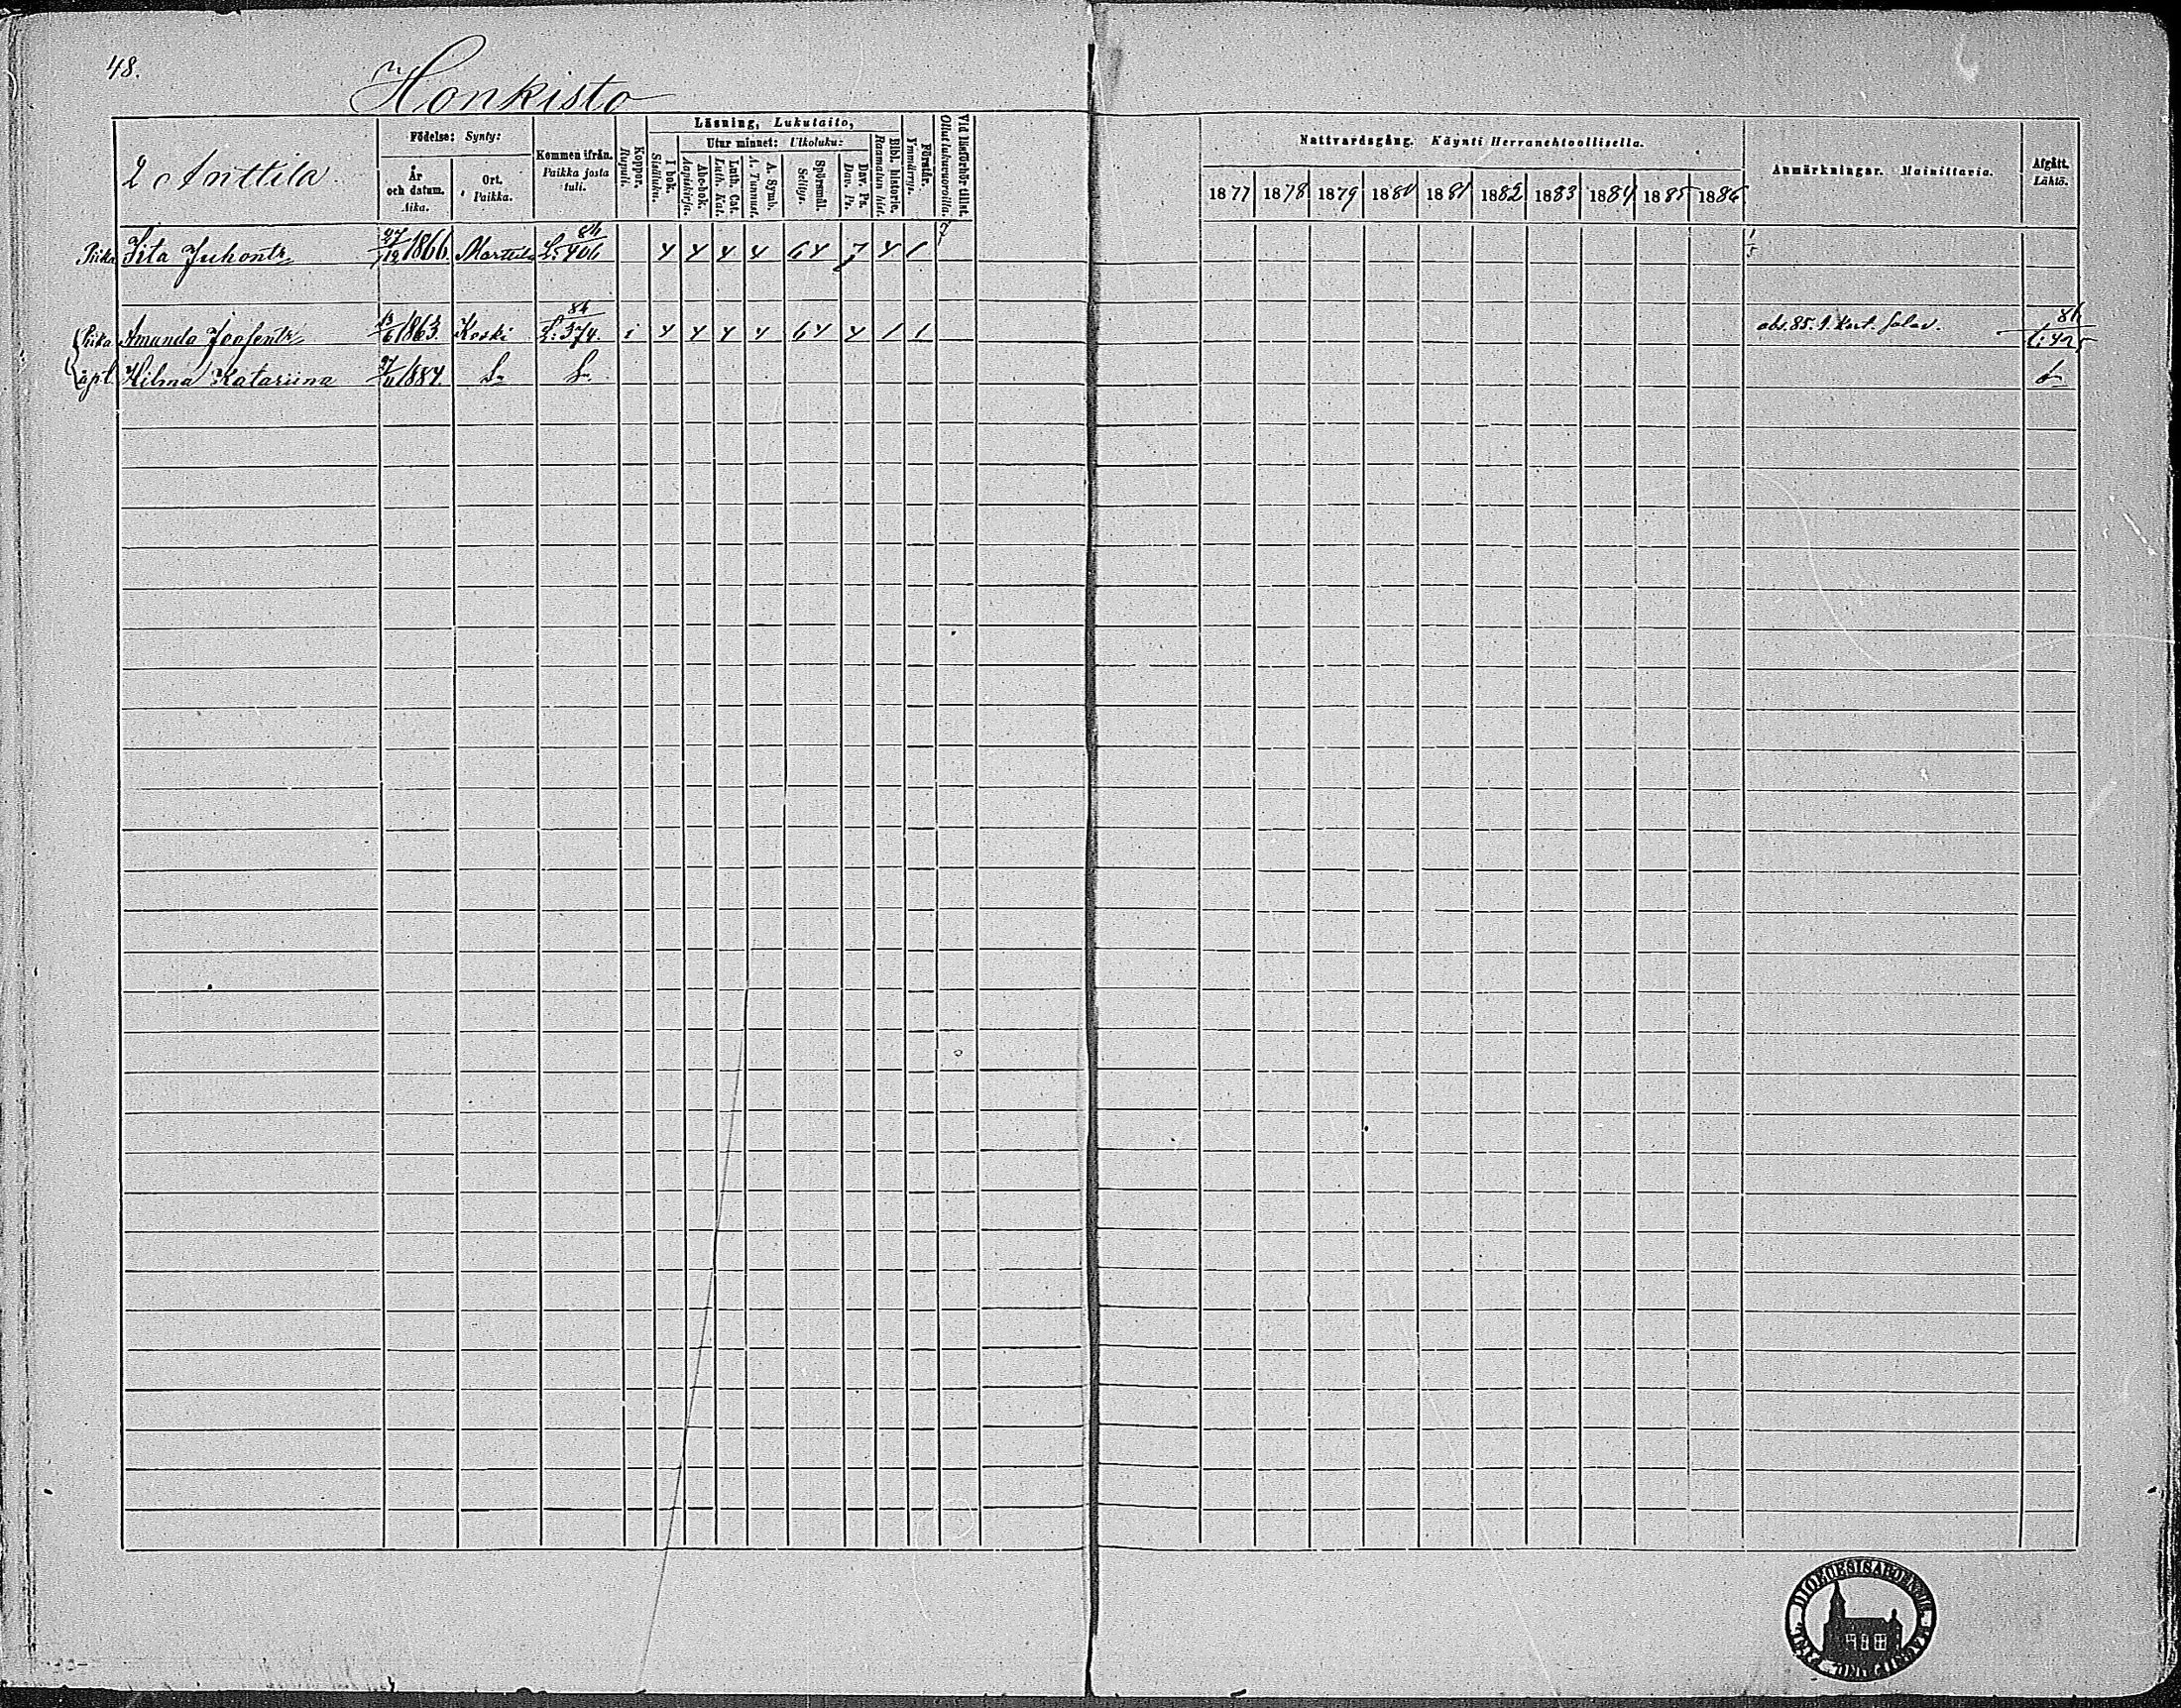 48.
Honkisto
2 Anttila
Födelse: Synty:
År och datum. Aika.
Ort. Paikka.
Kommen ifrån. Paikka josta tuli.
Koppor. Rupuli.
Läsning, Lukutaito,
I bok. Sisäluku.
Utur minnet: Ulkoluku:
Abc-bok. Aapiskirja.
Luth. Cat. Luth. Kat.
A. Symb. A. Tunnust.
Spörsmål. Selitys.
Dav. Ps. Dav. Ps.
Bibl. historie. Raamatun hist.
Förstår. Ymmärrys.
Vid läsförhör tillst. Ollut lukuvuoroilla.
Nattvardsgång. Käynti Herranehtoollisella.
1877 1878 1879 1880 1881 1882 1883 1884 1885 1886
Anmärkningar. Mainittavia.
Afgått. Lähtö.
Piika Iita Juhontr 27/12 1866. Marttila 86 L: 406 4 4 4 4 64 7 4 1
Piika Amanda Joosentr 1863. Koski 84 L: 374. i 4 4 4 4 64 4 1 1 abs. 85. 1. kert. salav. 86
äpl. Hilma Katariina 1884.